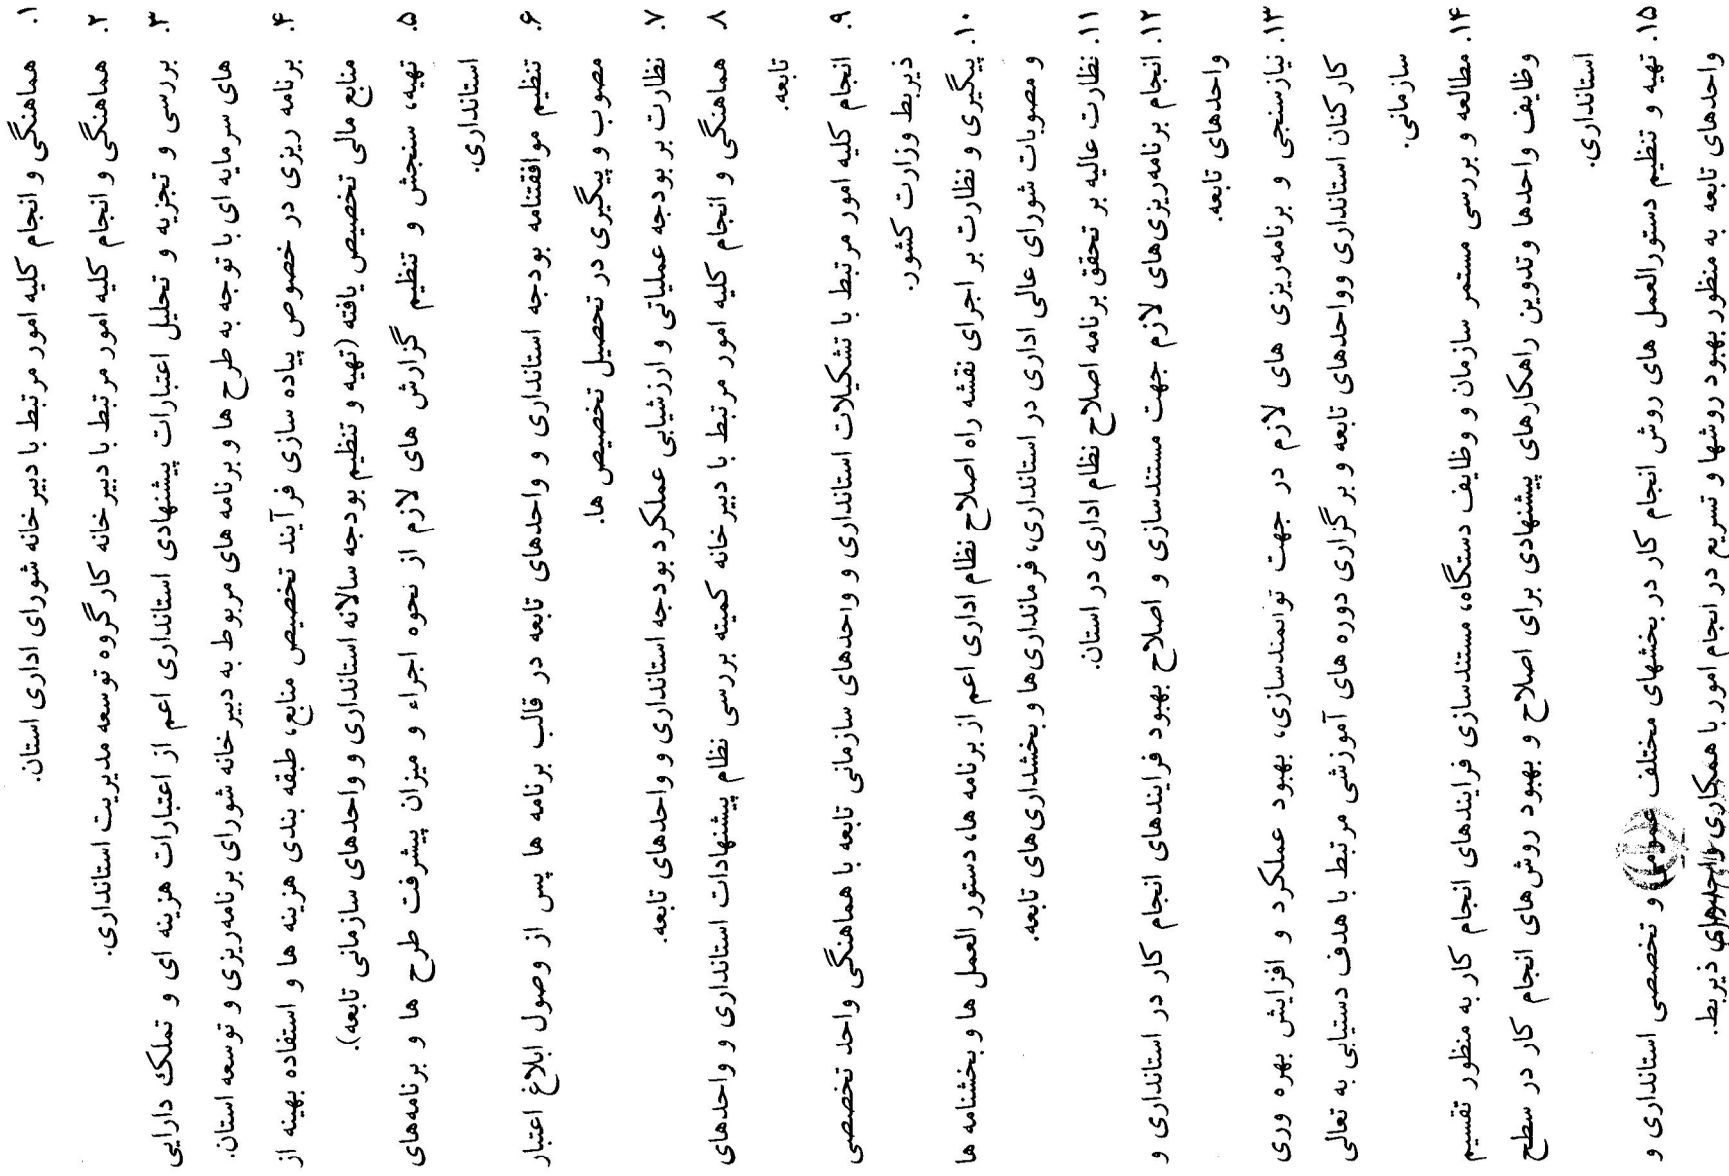 ۱. هماهنگی و انجام کلیه امور مرتبط با دبیرخانه شورای اداری استان.
۲. هماهنگی و انجام کلیه امور مرتبط با دبیرخانه کارگروه توسعه مدیریت استانداری.
۳. بررسی و تجزیه و تحلیل اعتبارات پیشنهادی استانداری اعم از اعتبارات هزینه ای و تملک دارایی
های سرمایه ای با توجه به طرح ها و برنامه های مربوط به دبیرخانه شورای برنامه‌ریزی و توسعه استان.
۴. برنامه ریزی در خصوص پیاده سازی فرآیند تخصیص منابع، طبقه بندی هزینه ها و استفاده بهینه از
منابع مالی تخصیص یافته (تهیه و تنظیم بودجه سالانه استانداری و واحدهای سازمانی تابعه).
۵. تهیه، سنجش و تنظیم گزارش های لازم از نحوه اجراء و میزان پیشرفت طرح ها و برنامه‌های
استانداری.
۶. تنظیم موافقتنامه بودجه استانداری و واحدهای تابعه در قالب برنامه ها پس از وصول ابلاغ اعتبار
مصوب و پیگیری در تحصیل تخصیص ها.
۷. نظارت بر بودجه عملیاتی و ارزشیابی عملکرد بودجه استانداری و واحدهای تابعه.
۸. هماهنگی و انجام کلیه امور مرتبط با دبیرخانه کمیته بررسی نظام پیشنهادات استانداری و واحدهای
تابعه.
۹. انجام کلیه امور مرتبط با تشکیلات استانداری و واحدهای سازمانی تابعه با هماهنگی واحد تخصصی
ذیربط وزارت کشور.
۱۰. پیگیری و نظارت بر اجرای نقشه راه اصلاح نظام اداری اعم از برنامه ها، دستور العمل ها و بخشنامه ها
و مصوبات شورای عالی اداری در استانداری، فرمانداری‌ها و بخشداری‌های تابعه.
۱۱. نظارت عالیه بر تحقق برنامه اصلاح نظام اداری در استان.
۱۲. انجام برنامه‌ریزی‌های لازم جهت مستندسازی و اصلاح بهبود فرایندهای انجام کار در استانداری و
واحدهای تابعه.
۱۳. نیازسنجی و برنامه‌ریزی های لازم در جهت توانمندسازی، بهبود عملکرد و افزایش بهره وری
کارکنان استانداری وواحدهای تابعه و برگزاری دوره های آموزشی مرتبط با هدف دستیابی به تعالی
سازمانی.
۱۴. مطالعه و بررسی مستمر سازمان و وظایف دستگاه، مستندسازی فرایندهای انجام کار به منظور تقسیم
وظایف واحدها وتدوین راهکارهای پیشنهادی برای اصلاح و بهبود روش‌های انجام کار در سطح
استانداری.
۱۵. تهیه و تنظیم دستورالعمل های روش انجام کار در بخشهای مختلف عمومی و تخصصی استانداری و
واحدهای تابعه به منظور بهبود روشها و تسریع در انجام امور با همکاری واحدهای ذیربط.